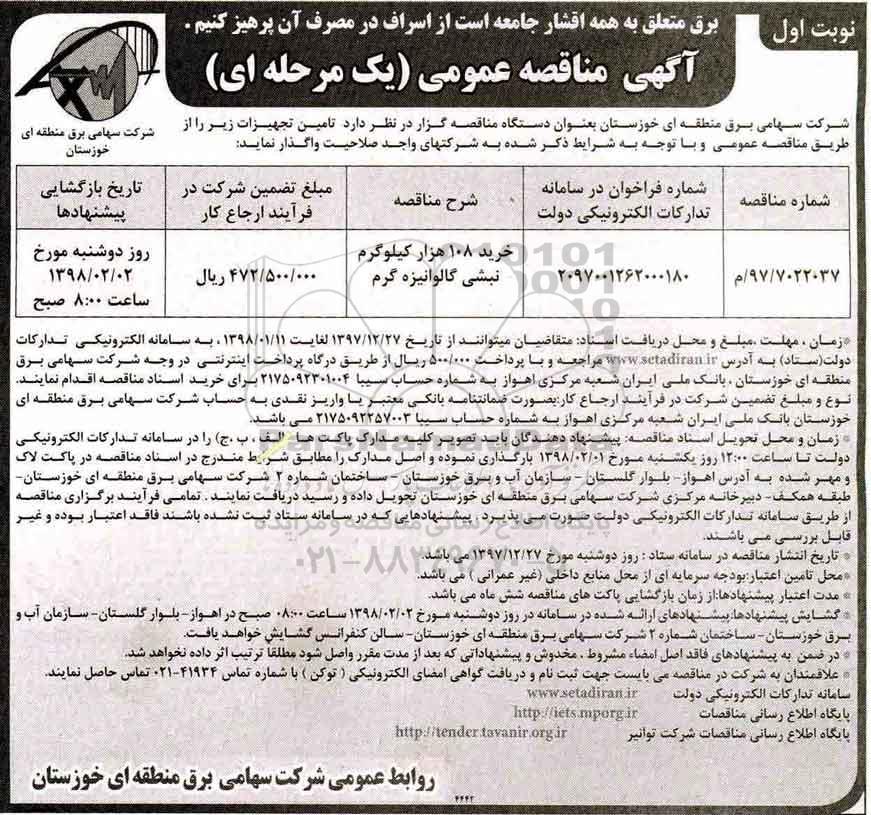 نوبت اول
برق متعلق به همه اقشار جامعه است از اسراف در مصرف آن پرهیز کنیم .
آگهی مناقصه عمومی (یک مرحله ای)
شرکت سهامی برق منطقه ای
خوزستان
شرکت سهامی برق منطقه ای خوزستان بعنوان دستگاه مناقصه گزار در نظر دارد تامین تجهیزات زیر را از
طریق مناقصه عمومی و با توجه به شرایط ذکر شده به شرکتهای واجد صلاحیت واگذار نماید:
شماره مناقصه
شماره فراخوان در سامانه
تدارکات الکترونیکی دولت
شرح مناقصه
مبلغ تضمین شرکت در
فرآیند ارجاع کار
تاریخ بازگشایی
پیشنهادها
۹۷/۷۰۲۲۰۳۷/م
۲۰۹۷۰۰۱۲۶۲۰۰۰۱۸۰
خرید ۱۰۸ هزار کیلوگرم
نبشی گالوانیزه گرم
۴۷۲/۵۰۰/۰۰۰ ریال
روز دوشنبه مورخ
۱۳۹۸/۰۲/۰۲
ساعت ۸:۰۰ صبح
*زمان ، مهلت ،مبلغ و محل دریافت اسناد: متقاضیان میتوانند از تاریخ ۱۳۹۷/۱۲/۲۷ لغایت ۱۳۹۸/۰۱/۱۱ ، به سامانه الکترونیکی تدارکات
دولت(ستاد) به آدرس www.setadiran.ir مراجعه و با پرداخت ۵۰۰/۰۰۰ ریال از طریق درگاه پرداخت اینترنتی در وجه شرکت سهامی برق
منطقه ای خوزستان ، بانک ملی ایران شعبه مرکزی اهواز به شماره حساب سیبا ۲۱۷۵۰۹۲۳۰۱۰۰۴ برای خرید اسناد مناقصه اقدام نمایند.
نوع و مبلغ تضمین شرکت در فرآیند ارجاع کار:بصورت ضمانتنامه بانکی معتبر یا واریز نقدی به حساب شرکت سهامی برق منطقه ای
خوزستان بانک ملی ایران شعبه مرکزی اهواز به شماره حساب سیبا ۲۱۷۵۰۹۲۲۵۷۰۰۳ می باشد.
* زمان و محل تحویل اسناد مناقصه: پیشنهاد دهندگان باید تصویر کلیه مدارک پاکت ها (الف ، ب ،ج) را در سامانه تدارکات الکترونیکی
دولت تا ساعت ۱۲:۰۰ روز یکشنبه مورخ ۱۳۹۸/۰۲/۰۱ بارگذاری نموده و اصل مدارک را مطابق شرایط مندرج در اسناد مناقصه در پاکت لاک
و مهر شده به آدرس اهواز- بلوار گلستان - سازمان آب و برق خوزستان - ساختمان شماره ۲ شرکت سهامی برق منطقه ای خوزستان-
طبقه همکف- دبیرخانه مرکزی شرکت سهامی برق منطقه ای خوزستان تحویل داده و رسید دریافت نمایند . تمامی فرآیند برگزاری مناقصه
از طریق سامانه تدارکات الکترونیکی دولت صورت می پذیرد . پیشنهادهایی که در سامانه ستاد ثبت نشده باشند فاقد اعتبار بوده و غیر
قابل بررسی می باشند.
* تاریخ انتشار مناقصه در سامانه ستاد : روز دوشنبه مورخ ۱۳۹۷/۱۲/۲۷ می باشد.
*محل تامین اعتبار:بودجه سرمایه ای از محل منابع داخلی (غیر عمرانی ) می باشد.
* مدت اعتبار پیشنهادها:از زمان بازگشایی پاکت های مناقصه شش ماه می باشد.
* گشایش پیشنهادها:پیشنهادهای ارائه شده در سامانه در روز دوشنبه مورخ ۱۳۹۸/۰۲/۰۲ ساعت ۰۸:۰۰ صبح در اهواز-بلوار گلستان- سازمان آب و
برق خوزستان- ساختمان شماره ۲ شرکت سهامی برق منطقه ای خوزستان- سالن کنفرانس گشایش خواهد یافت.
* در ضمن به پیشنهادهای فاقد اصل امضاء مشروط ، مخدوش و پیشنهاداتی که بعد از مدت مقرر واصل شود مطلقا ترتیب اثر داده نخواهد شد.
* علاقمندان به شرکت در مناقصه می بایست جهت ثبت نام و دریافت گواهی امضای الکترونیکی ( توکن ) با شماره تماس ۴۱۹۳۴-۰۲۱ تماس حاصل نمایند.
سامانه تدارکات الکترونیکی دولت www.setadiran.ir
پایگاه اطلاع رسانی مناقصات http://iets.mporg.ir
پایگاه اطلاع رسانی مناقصات شرکت توانیر http://tender.tavanir.org.ir
روابط عمومی شرکت سهامی برق منطقه ای خوزستان
۴۴۴۲
پایگاه اطلاع رسانی مناقصه و مزایده